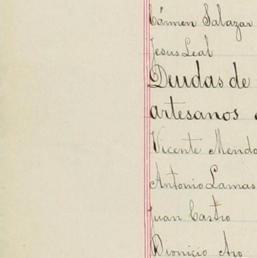 Cármen Salazar
Jesus Leal
Deudas de
artesanos
Vicente Mendo
Antonio Lamas
Juan Castro
Dionicio Aro